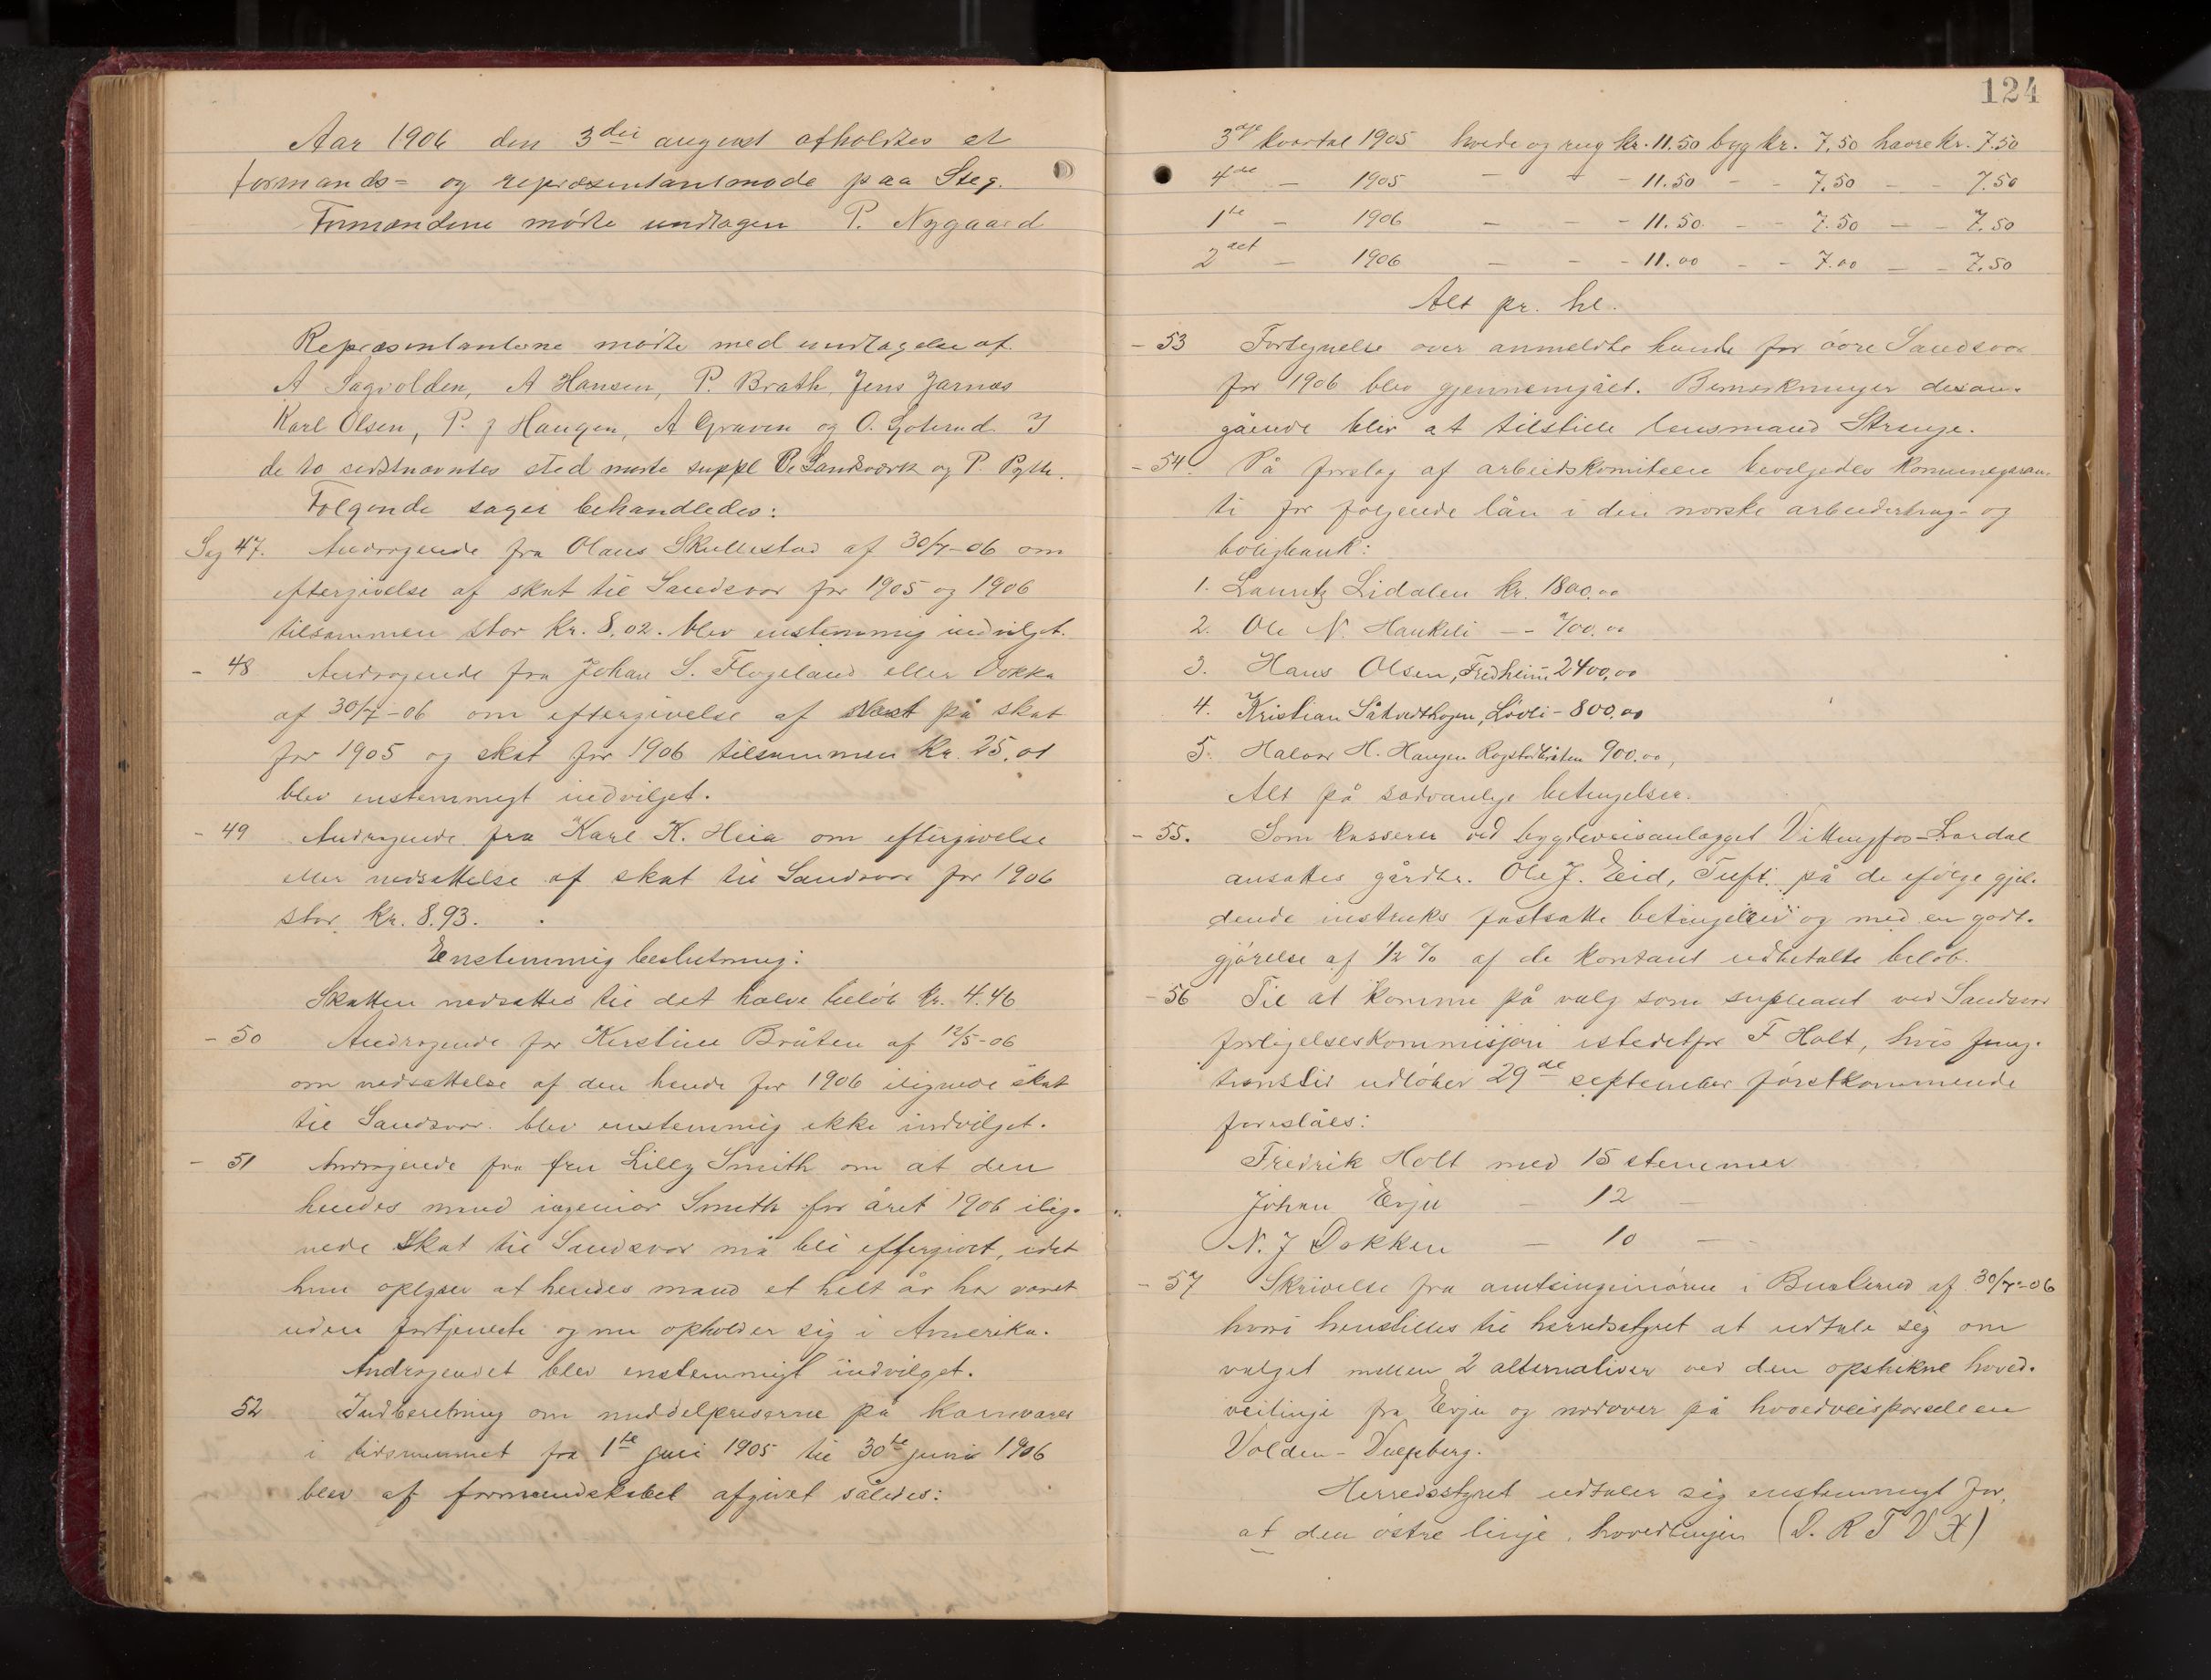 Aar 1906 den 3die august afholdtes et
formands- og repræsentantmøde paa Steg.
Formændene mødte undtagen P. Nygaard
Repræsentanterne mødte med undtagelse af
A Sagvolden, A Hansen, P. Brath, Jens Jarnæs
Karl Olsen, P. J Haugen, A Graven og O. Goterud I
de to sidstnævntes sted mødte suppl Ole Sandsværk og P. Pytte.
Følgende sager behandledes:
Sag 47. Andragende fra Olaus Skullestad af 30/7-06 om
eftergivelse af skat til Sandsvær for 1905 og 1906
tilsammen stor kr. 8.02. blev enstemmig indvilget.
- 48 Andragende fra Johan S. Flugeland eller Dokka
af 30/7-06 om eftergivelse af rest på skat
for 1905 og skat for 1906 tilsammen kr. 25.01
blev enstemmigt indvilget.
- 49 Andragende fra Karl K. Heia om eftergivelse
eller nedsættelse af skat til Sandsvær for 1906
stor kr. 8.93.
Enstemmig beslutning:
Skatten nedsattes til det halve beløb kr. 4.46
- 50 Andragende for Kirstine Bråten af 12/5-06
om nedsættelse af den hende for 1906 ilignede skat
til Sandsvær blev enstemmig ikke indvilget.
- 51 Andragende fra fru Lilly Smith om at den
hendes mand ingeniør Smith for året 1906 ilig-
nede skat til Sandsvær må bli eftergivet, idet
hun oplyser at hendes mand et helt år har været
uden fortjeneste og nu opholder sig i Amerika.
Andragendet blev enstemmigt indvilget.
52 Indberetning om middelpriserne på kornvarer
i tidsrummet fra 1te juli 1905 til 30te juni 1906
blev af formandskabet afgivet således:
124
3dje kvartal 1905 hvede og rug kr. 11.50 byg kr. 7.50 havre kr. 7.50
4de - 1905 - - - 11.50 - - 7.50 - - 7.50
1te - 1906 - - - 11.50 - - 7.50 - - 7.50
2det - 1906 - - - 11.00 - - 7.00 - - 7.50
Alt pr. hl.
- 53 Fortegnelse over anmeldte hunde for øvre Sandsvær
for 1906 blev gjennemgået. Bemerkninger desan-
gående blir at tilstille lensmand Strange.
- 54. På forslag af arbeidskomiteen bevilgedes kommunegaran-
ti for følgende lån i den norske arbeiderbrug- og
boligbank:
1. Lauritz Lidalen kr. 1800.00
2. Ole N. Haukeli - - 700.00
3. Hans Olsen, Fredheim - 2400.00
4. Kristian Såtvedthagen, Løvli - 800.00
5. Halvor H. Haugen Rogstadbråten 900.00,
Alt på sædvanlige betingelser.
- 55. Som kasserer ved bygdeveisanlægget Vittingfos-Lardal
ansattes gårdbr. Ole J. Eid, Tuft på de ifølge gjel-
dende instruks fastsatte betingelser og med en godt-
gjørelse af 1/2 % af de kontant udbetalte beløb.
- 56 Til at komme på valg som supleant ved Sandsvær
forligelseskommisjon istedetfor F Holt, hvis fung-
tionstid udløber 29de september førstkommende
foreslåes:
Fredrik Holt med 15 stemmer
Johan Evju - 12 -
N. J Dokken - 10 -
- 57 Skrivelse fra amtsingeniøren i Buskerud af 30/7-06
hvori henstilles til herredsstyret at udtale sig om
valget mellem 2 alternativer ved den opstukne hoved-
veilinje fra Evju og nordover på hovedveisparsellen
Volden-
Herredsstyret udtaler sig enstemmigt for,
at den østre linje, hovedlinjen (D. R T V X)